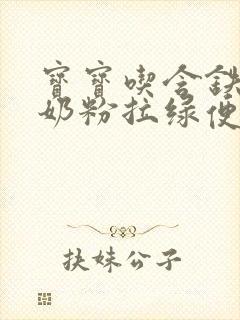 寶寶喫含鉄
奶粉拉绿便
扶妹公子